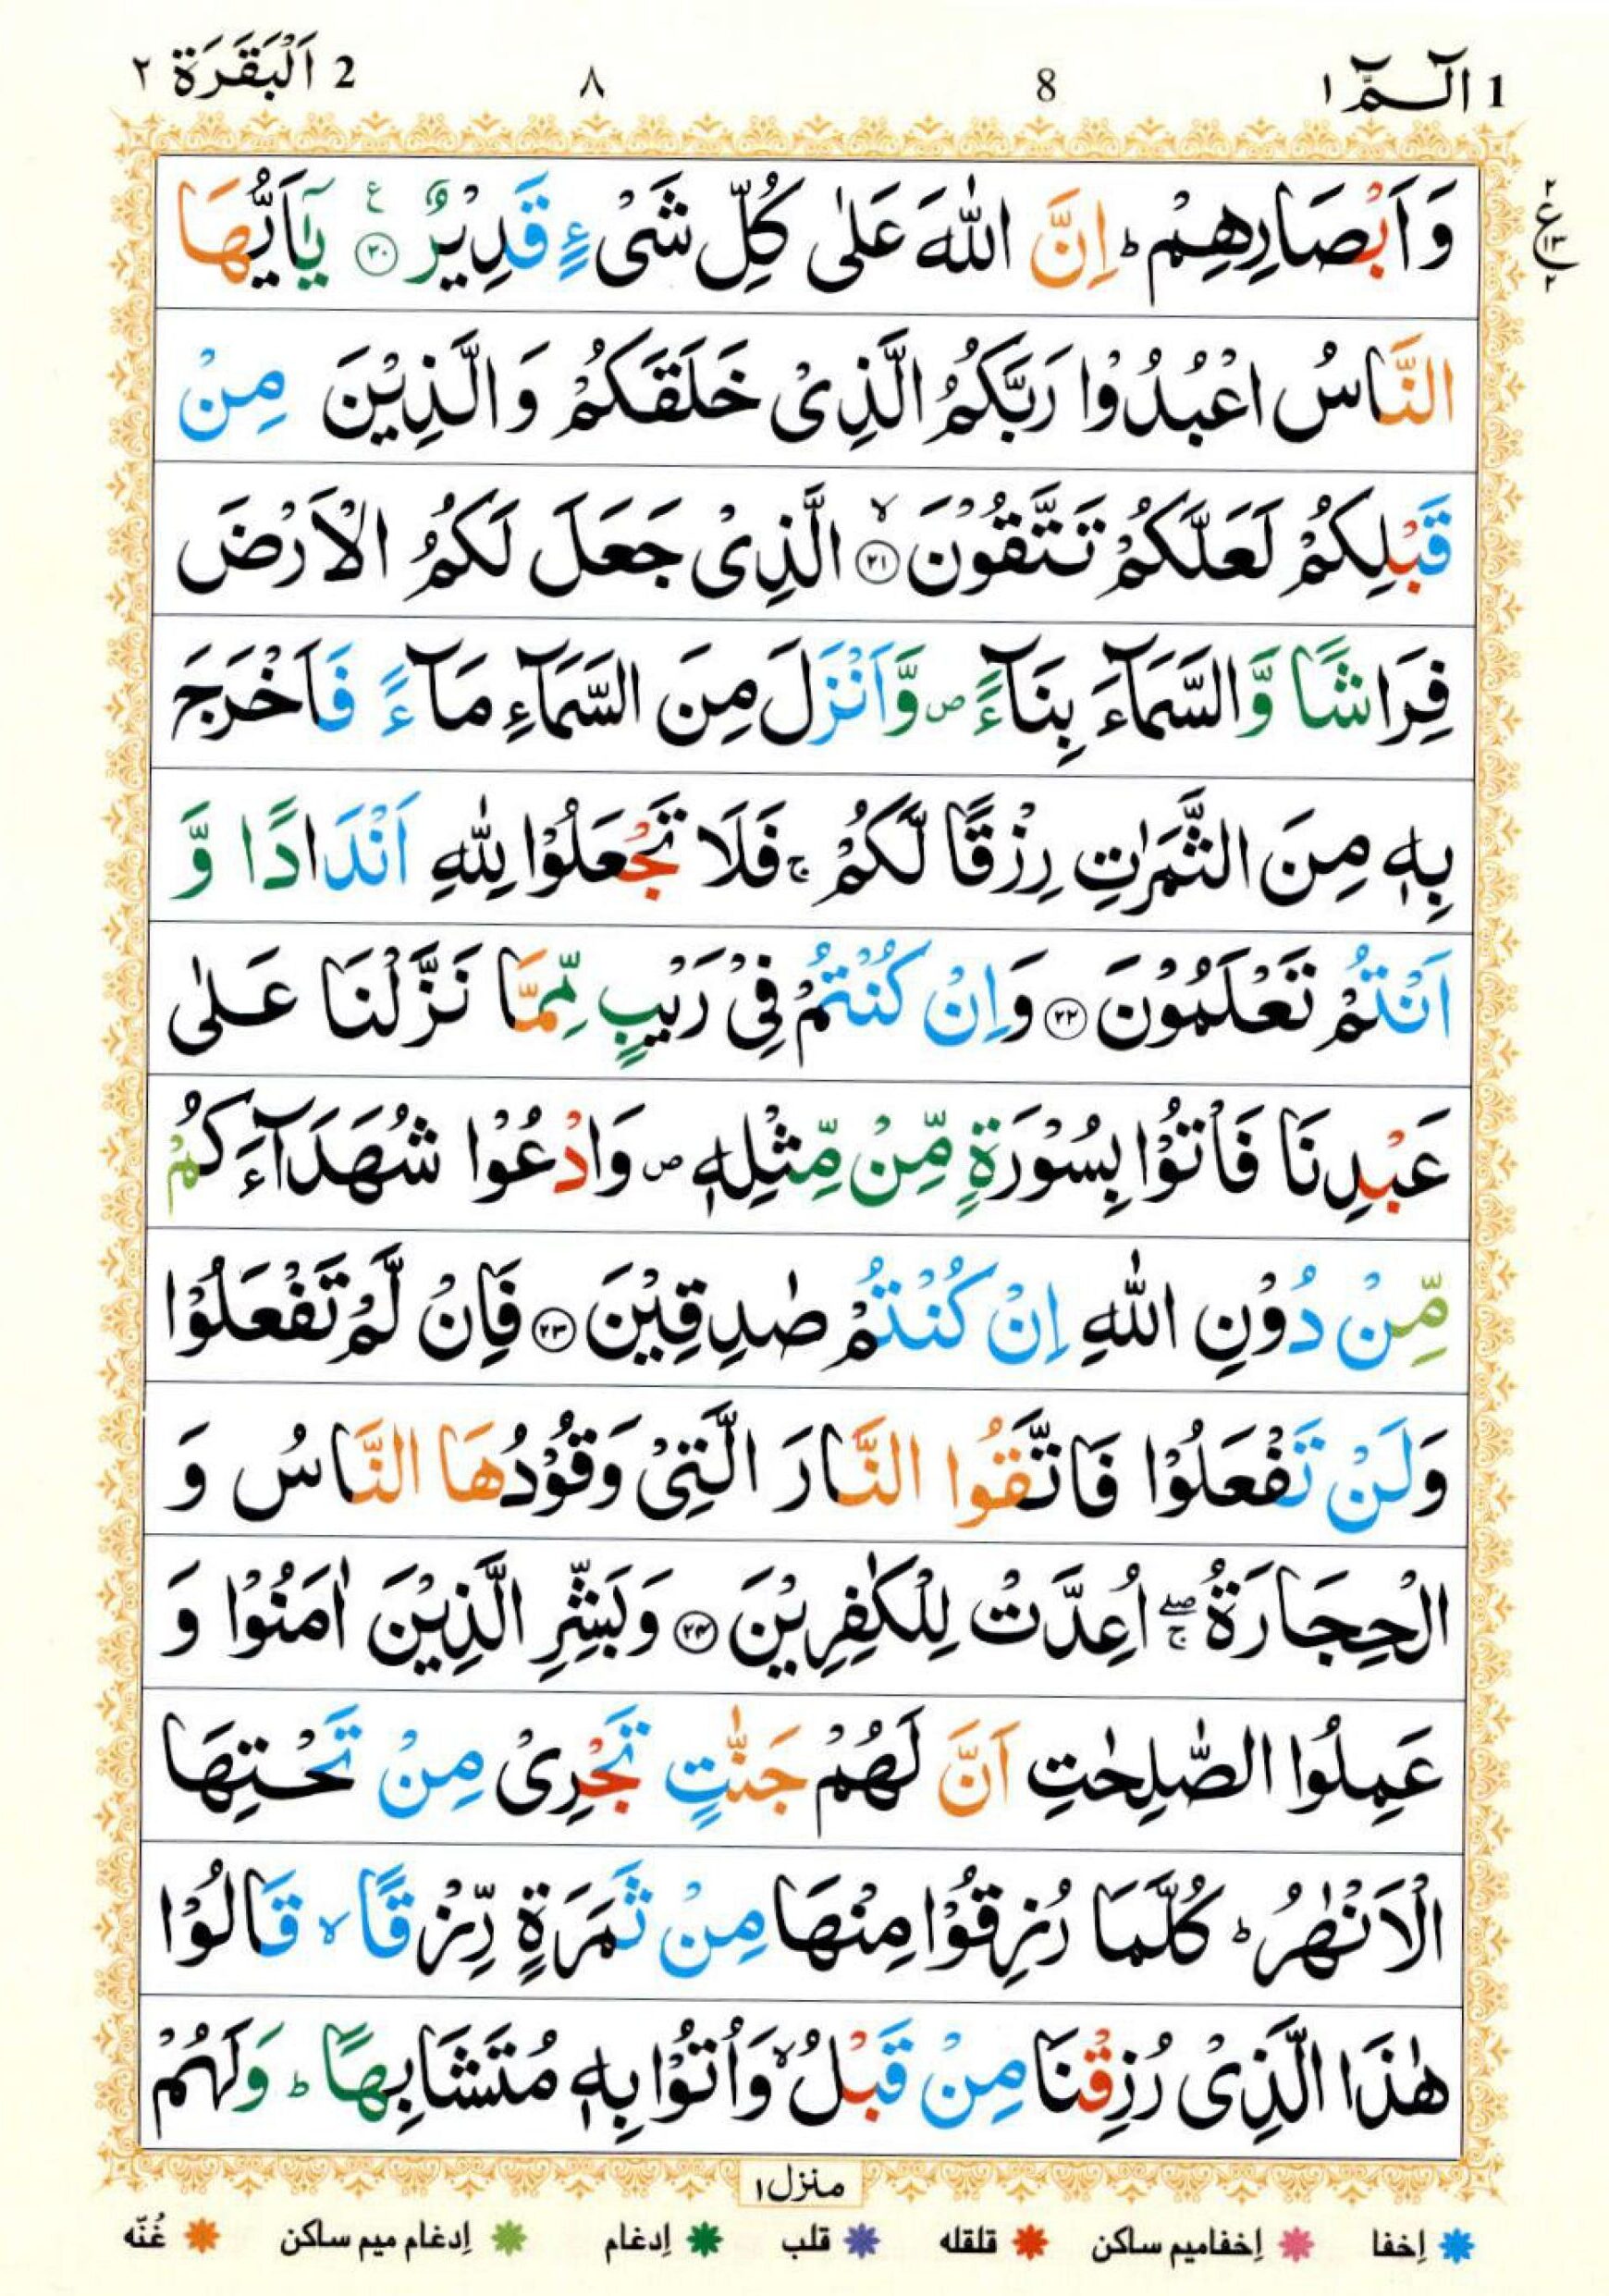 1 الٓـمّٓ ۱ 8 ۸ 2 اَلْبَقَرَة ۲
۲ ع ۱۳ ۲
وَاَبْصَارِهِمْ ؕ اِنَّ اللّٰهَ عَلٰى كُلِّ شَیْءٍ قَدِیْرٌ ۠ ﴿۲۰﴾ ع یٰۤاَیُّهَا
النَّاسُ اعْبُدُوْا رَبَّكُمُ الَّذِیْ خَلَقَكُمْ وَالَّذِیْنَ مِنْ
قَبْلِكُمْ لَعَلَّكُمْ تَتَّقُوْنَ ۙ ﴿۲۱﴾ الَّذِیْ جَعَلَ لَكُمُ الْاَرْضَ
فِرَاشًا وَّالسَّمَآءَ بِنَآءً ۪ وَّاَنْزَلَ مِنَ السَّمَآءِ مَآءً فَاَخْرَجَ
بِهٖ مِنَ الثَّمَرٰتِ رِزْقًا لَّكُمْ ۚ فَلَا تَجْعَلُوْا لِلّٰهِ اَنْدَادًا وَّ
اَنْتُمْ تَعْلَمُوْنَ ﴿۲۲﴾ وَاِنْ كُنْتُمْ فِیْ رَیْبٍ مِّمَّا نَزَّلْنَا عَلٰى
عَبْدِنَا فَاْتُوْا بِسُوْرَةٍ مِّنْ مِّثْلِهٖ ۪ وَادْعُوْا شُهَدَآءَكُمْ
مِّنْ دُوْنِ اللّٰهِ اِنْ كُنْتُمْ صٰدِقِیْنَ ﴿۲۳﴾ فَاِنْ لَّمْ تَفْعَلُوْا
وَلَنْ تَفْعَلُوْا فَاتَّقُوا النَّارَ الَّتِیْ وَقُوْدُهَا النَّاسُ وَ
الْحِجَارَةُ ۖۚ اُعِدَّتْ لِلْكٰفِرِیْنَ ﴿۲۴﴾ وَبَشِّرِ الَّذِیْنَ اٰمَنُوْا وَ
عَمِلُوا الصّٰلِحٰتِ اَنَّ لَهُمْ جَنّٰتٍ تَجْرِیْ مِنْ تَحْتِهَا
الْاَنْهٰرُ ؕ كُلَّمَا رُزِقُوْا مِنْهَا مِنْ ثَمَرَةٍ رِّزْقًا ۙ قَالُوْا
هٰذَا الَّذِیْ رُزِقْنَا مِنْ قَبْلُ ۙ وَاُتُوْا بِهٖ مُتَشَابِهًا ؕ وَلَهُمْ
منزل ۱
اِخفا اِخفامیم ساکن قلقله قلب اِدغام اِدغام میم ساکن غُنّه